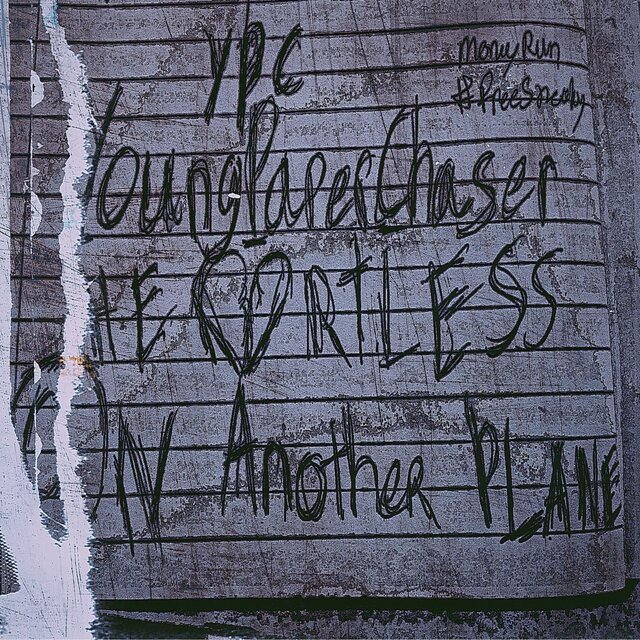 YPC
Money Run
YoungPaperChaser
HE♡RTLESS
ON Another PLANE